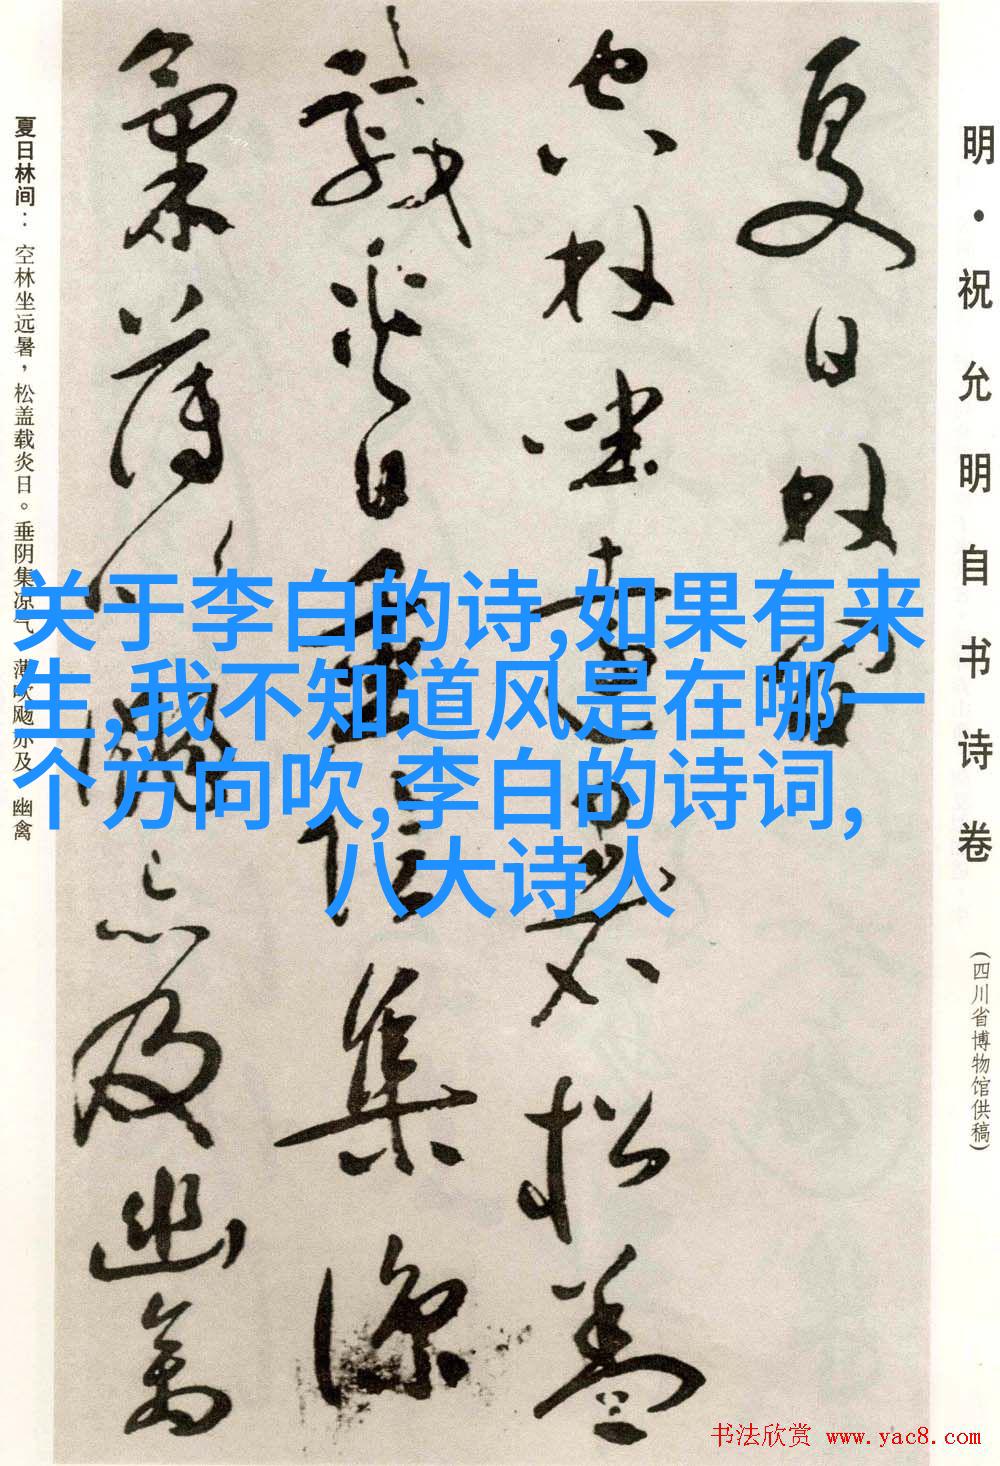 明·祝允明自书诗卷
(四川省博物馆供稿)
夏日林间
空林坐远暑松盖
载炎日垂阴集凉
气薄吹飏亦及幽禽
夏日林间：空林坐远暑，松盖载炎日。垂阴集凉气 薄吹飏亦及 幽禽
关于李白的诗,如果有来
生,我不知道风是在哪一
个方向吹,李白的诗词,
八大诗人
书法欣赏 www.yac8.com